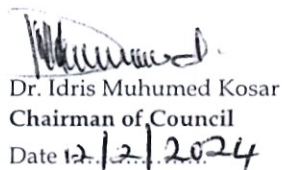 Dr. Idris Muhumed Kosar
Chairman of Council
Date 12/2/2024